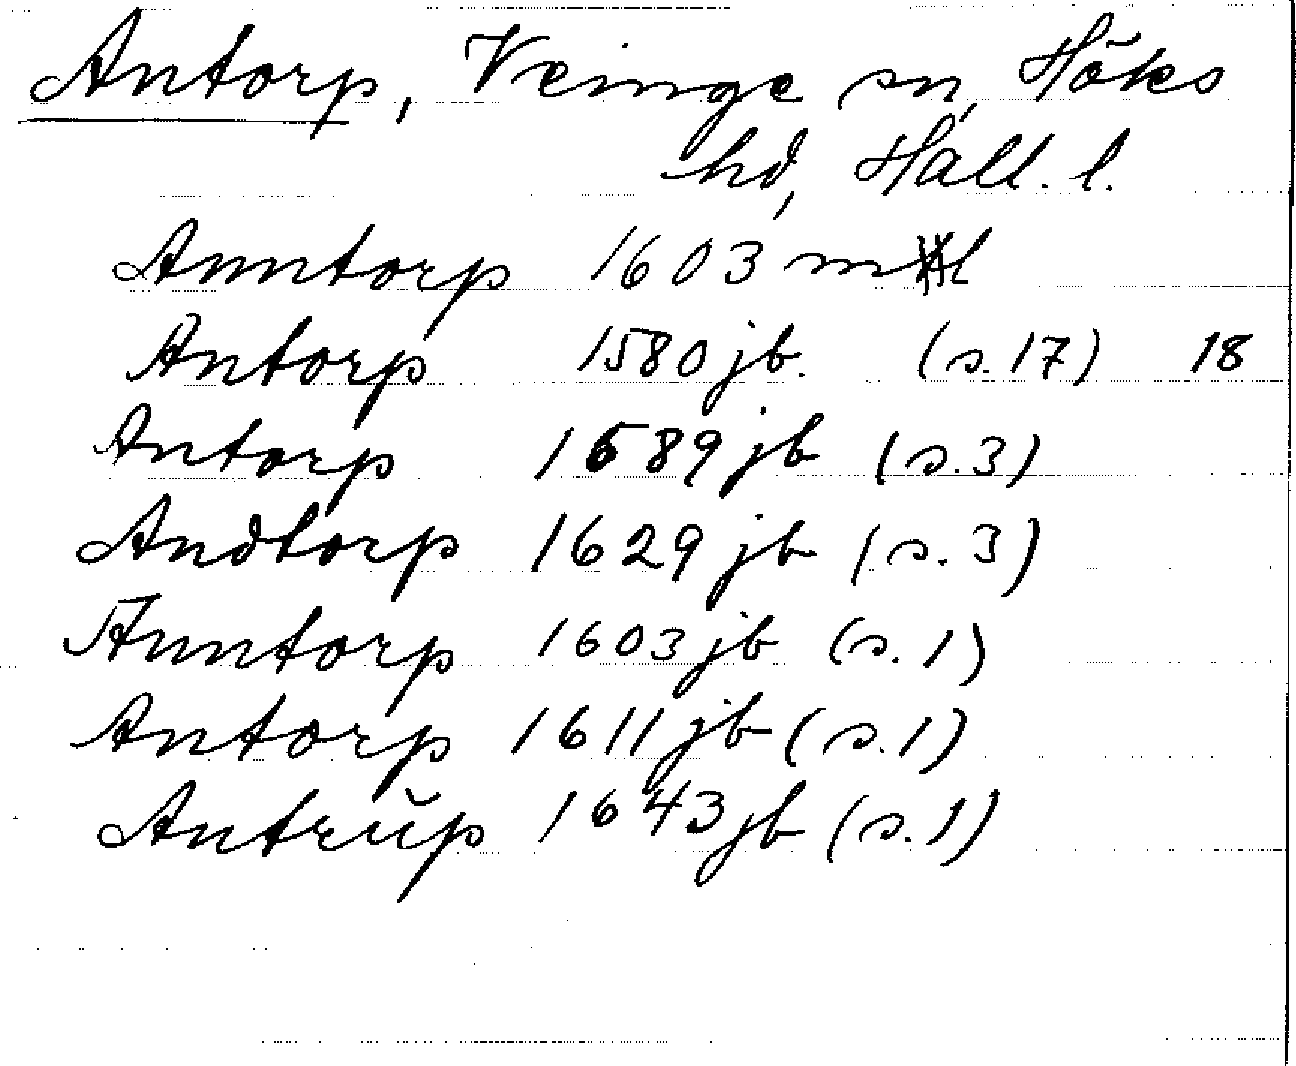 Antorp, Veinge sn, Höks
hd, Hall. l.
Anntorp 1603 ml
Antorp 1580 jb. (s. 17) 18
Antorp 1589 jb (s. 3)
Andtorp 1629 jb (s. 3)
Anntorp 1603 jb (s. 1)
Antorp 1611 jb (s. 1)
Antrŭp 1643 jb (s. 1)